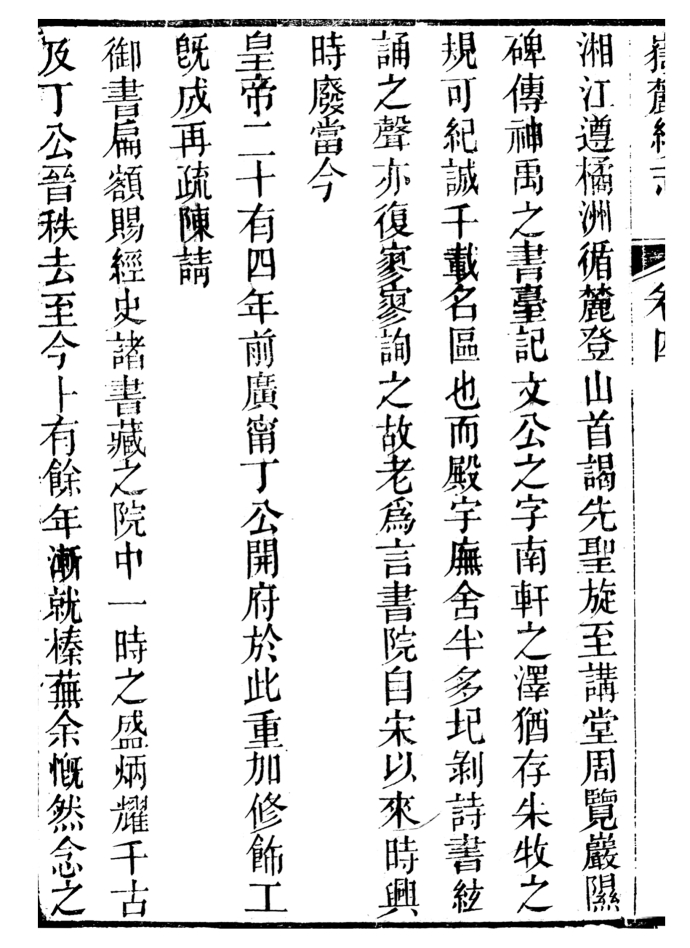 嶽麓續志 卷四
湘江遵橘洲循麓登山首謁先聖旋至講堂周覽巖隰
碑傳神禹之書臺記文公之字南軒之澤猶存朱牧之
規可紀誠千載名區也而殿宇廡舍半多圮剝詩書絃
誦之聲亦復寥寥詢之故老爲言書院自宋以來時興
時廢當今
皇帝二十有四年前廣甯丁公開府於此重加修飾工
旣成再疏陳請
御書扁額賜經史諸書藏之院中一時之盛炳耀千古
及丁公晉秩去至今十有餘年漸就榛蕪余慨然念之